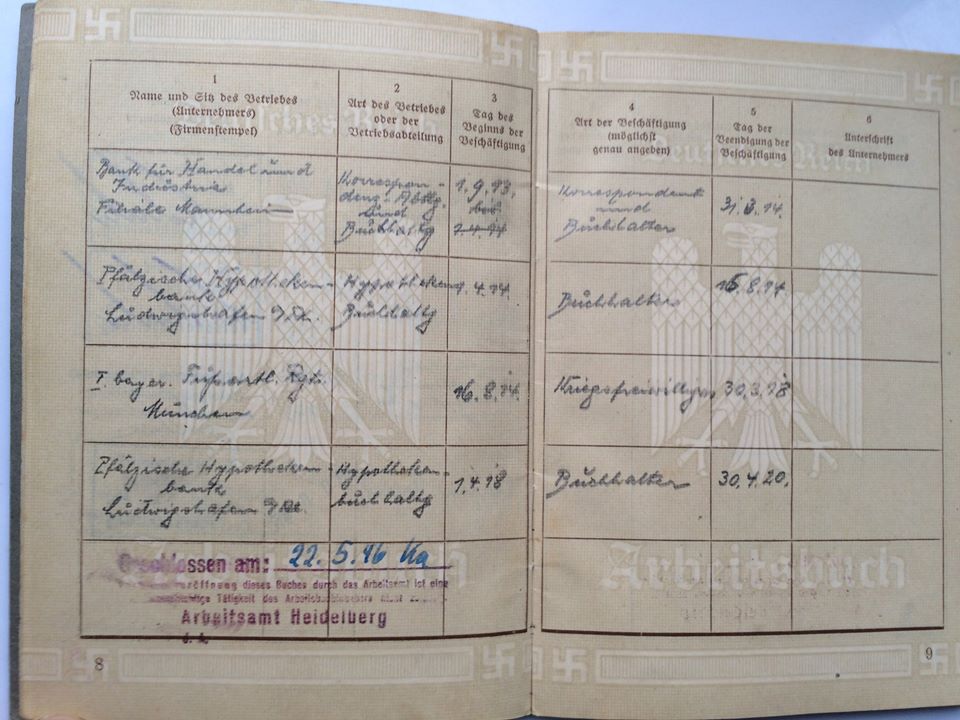 1
Name und Sitz des Betriebes
(Unternehmers)
(Firmenstempel)
2
Art des Betriebes
oder der
Betriebsabteilung
3
Tag des
Beginns der
Beschäftigung
4
Art der Beschäftigung
(möglichst
genau angeben)
5
Tag der
Beendigung der
Beschäftigung
6
Unterschrift
des Unternehmers
Bank für Handel und
Industrie
Filiale Mannheim
Korrespon-
denz-Abtlg.
und
Buchhaltg
1.9.13.
bis
Korrespondent
und
Buchhalter
31.3.14.
Pfälzische Hypotheken-
bank
Ludwigshafen a/Rh.
Hypotheken
Buchhaltg
1.4.14.
Buchhalter
15.8.14
I. bayer. Fußartl. Rgt.
München
16.8.14.
Kriegsfreiwilliger
30.3.18
Pfälzische Hypotheken-
bank
Ludwigshafen a/Rh.
Hypotheken-
buchhaltg
1.4.18
Buchhalter
30.4.20.
Geschlossen am: 22.5.46 Ka
dieses Buches durch das Arbeitsamt ist eine
Tätigkeit des
Arbeitsamt Heidelberg
Deutsches Reich
Arbeitsbuch
8
9